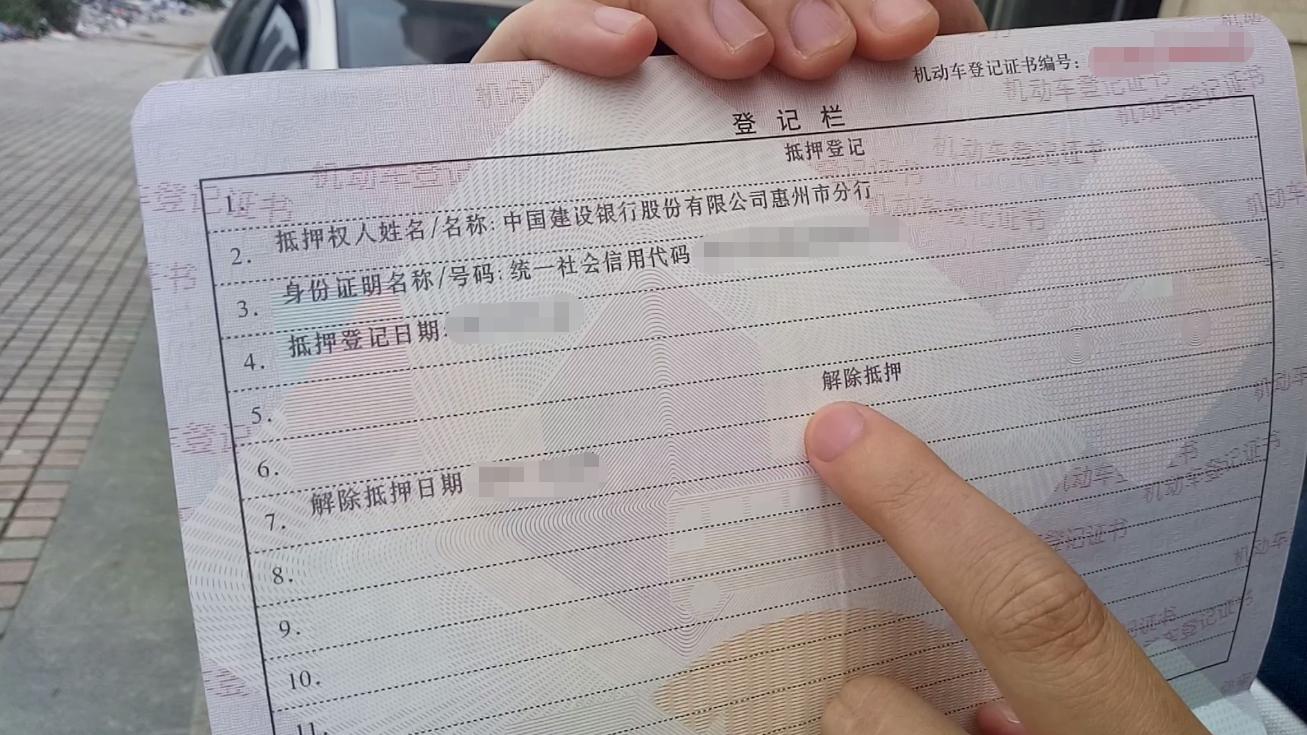 机动车登记证书编号:
登记栏
抵押登记
1.
抵押权人姓名/名称: 中国建设银行股份有限公司惠州市分行
2.
身份证明名称/号码: 统一社会信用代码
3.
抵押登记日期:
4.
解除抵押
5.
6.
解除抵押日期
7.
8.
9.
10.
11.